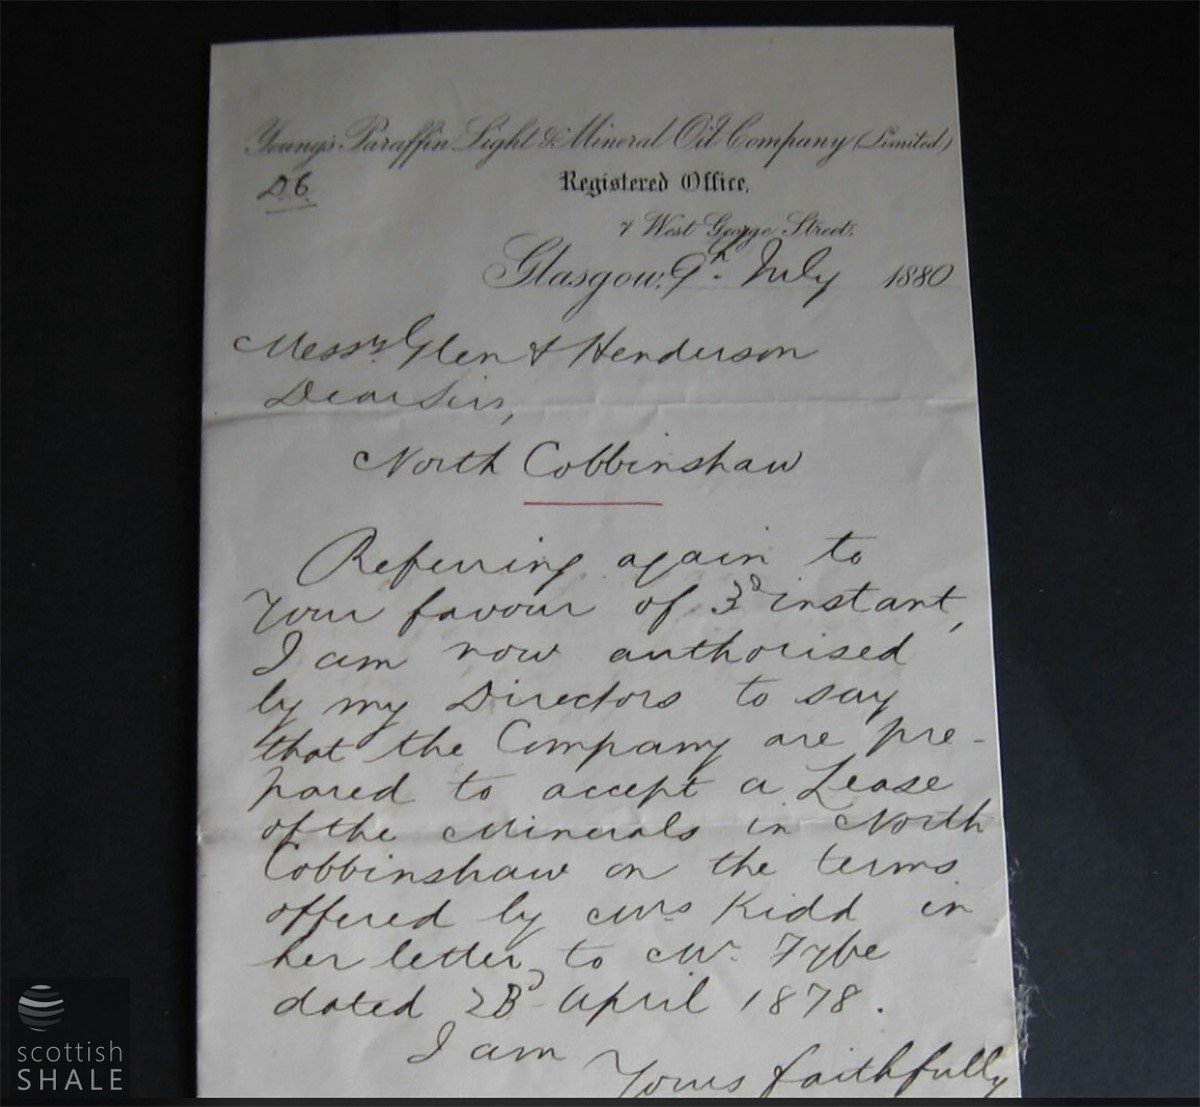 Young's Paraffin Light & Mineral Oil Company (Limited)
D.6.
Registered Office,
7 West George Street.
Glasgow, 9th July 1880
Messrs Glen & Henderson
Dear Sirs,
North Cobbinshaw
Referring again to
your favour of 3d instant,
I am now authorised
by my Directors to say
that the Company are pre-
pared to accept a Lease
of the Minerals in North
Cobbinshaw on the terms
offered by Mrs Kidd in
her letter to Mr. Fybe
dated 23d April 1878.
I am
Yours faithfully
scottish
SHALE